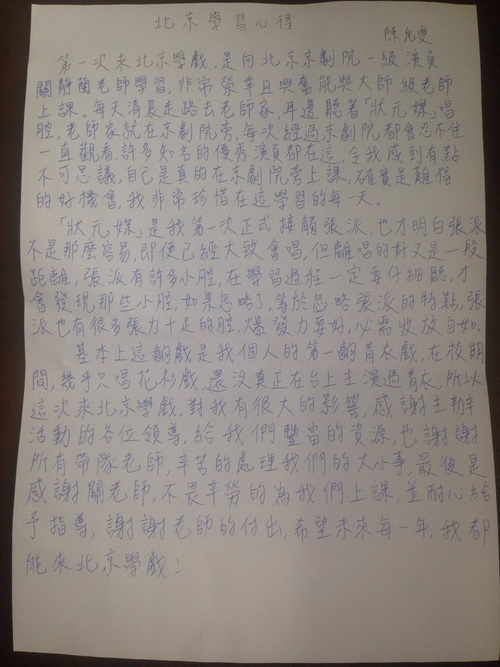 北京學習心得
陳允雯
第一次來北京學戲，是向北京京劇院一級演員
關靜蘭老師學習，非常榮幸且興奮能與大師級老師
上課。每天清晨走路去老師家，耳邊聽著「狀元媒」唱
腔，老師家就在京劇院旁，每次經過京劇院都會忍不住
一直觀看，許多知名的優秀演員都在這，令我感到有點
不可思議，自己是真的在京劇院旁上課，確實是難得
的好機會，我非常珍惜在這學習的每一天。
「狀元媒」是我第一次正式接觸張派，也才明白張派
不是那麼容易，即使已經大致會唱，但離唱的好又是一段
距離，張派有許多小腔，在學習過程一定要仔細聽，才
會發現那些小腔，如果忽略了，等於忽略張派的特點，張
派也有很多張力十足的腔，爆發力要好，必需收放自如。
基本上這齣戲是我個人的第一齣青衣戲，在校期
間，幾乎只唱花衫戲，還沒真正在台上主演過青衣，所以
這次來北京學戲，對我有很大的影響，感謝主辦
活動的各位領導，給我們豐富的資源，也謝謝
所有帶隊老師，辛苦的處理我們的大小事，最後是
感謝關老師，不畏辛勞的為我們上課，並耐心給
予指導，謝謝老師的付出，希望未來每一年，我都
能來北京學戲！